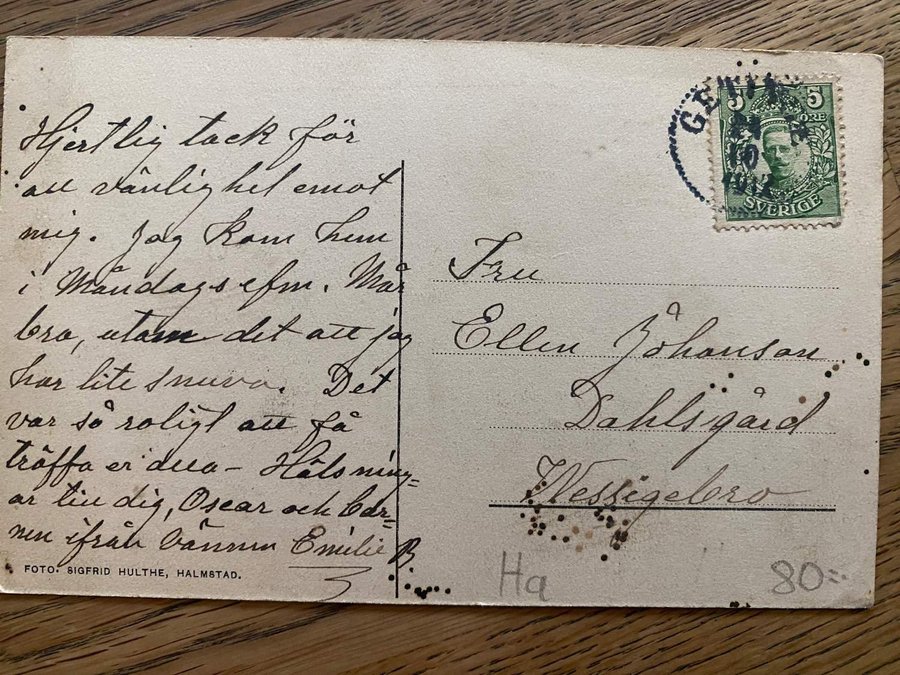 Hjertlig tack för
all vänlighet emot
mig. Jag kom hem
i Måndags efm. Mår
bra, utom det att jag
har lite snuva. Det
var så roligt att få
träffa er alla – Hälsning=
ar till dig, Oscar och bar=
nen ifrån Vännen Emilie B.
FOTO: SIGFRID HULTHE, HALMSTAD.
5 5
ÖRE
SVERIGE
10
Fru
Ellen Johanson
Dahlsgård
Wessigebro
Ha 80=